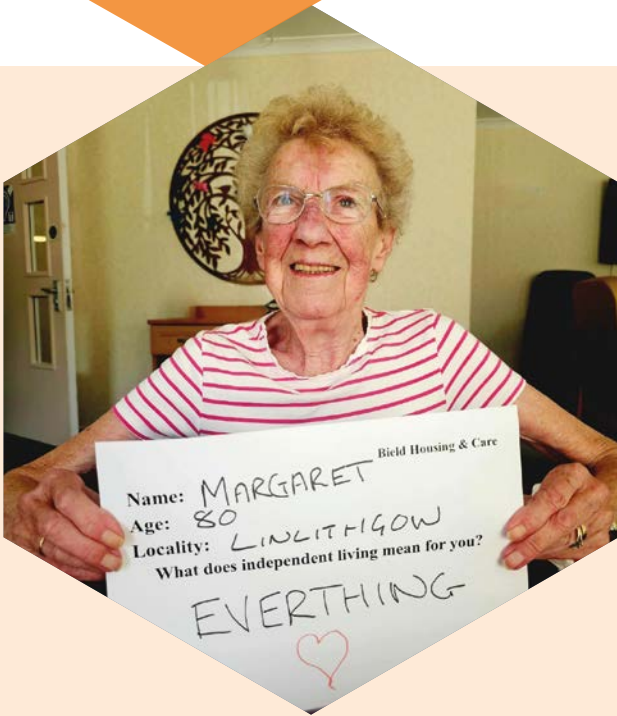 Bield Housing & Care
Name: MARGARET
Age: 80
Locality: LINLITHGOW
What does independent living mean for you?
EVERTHING